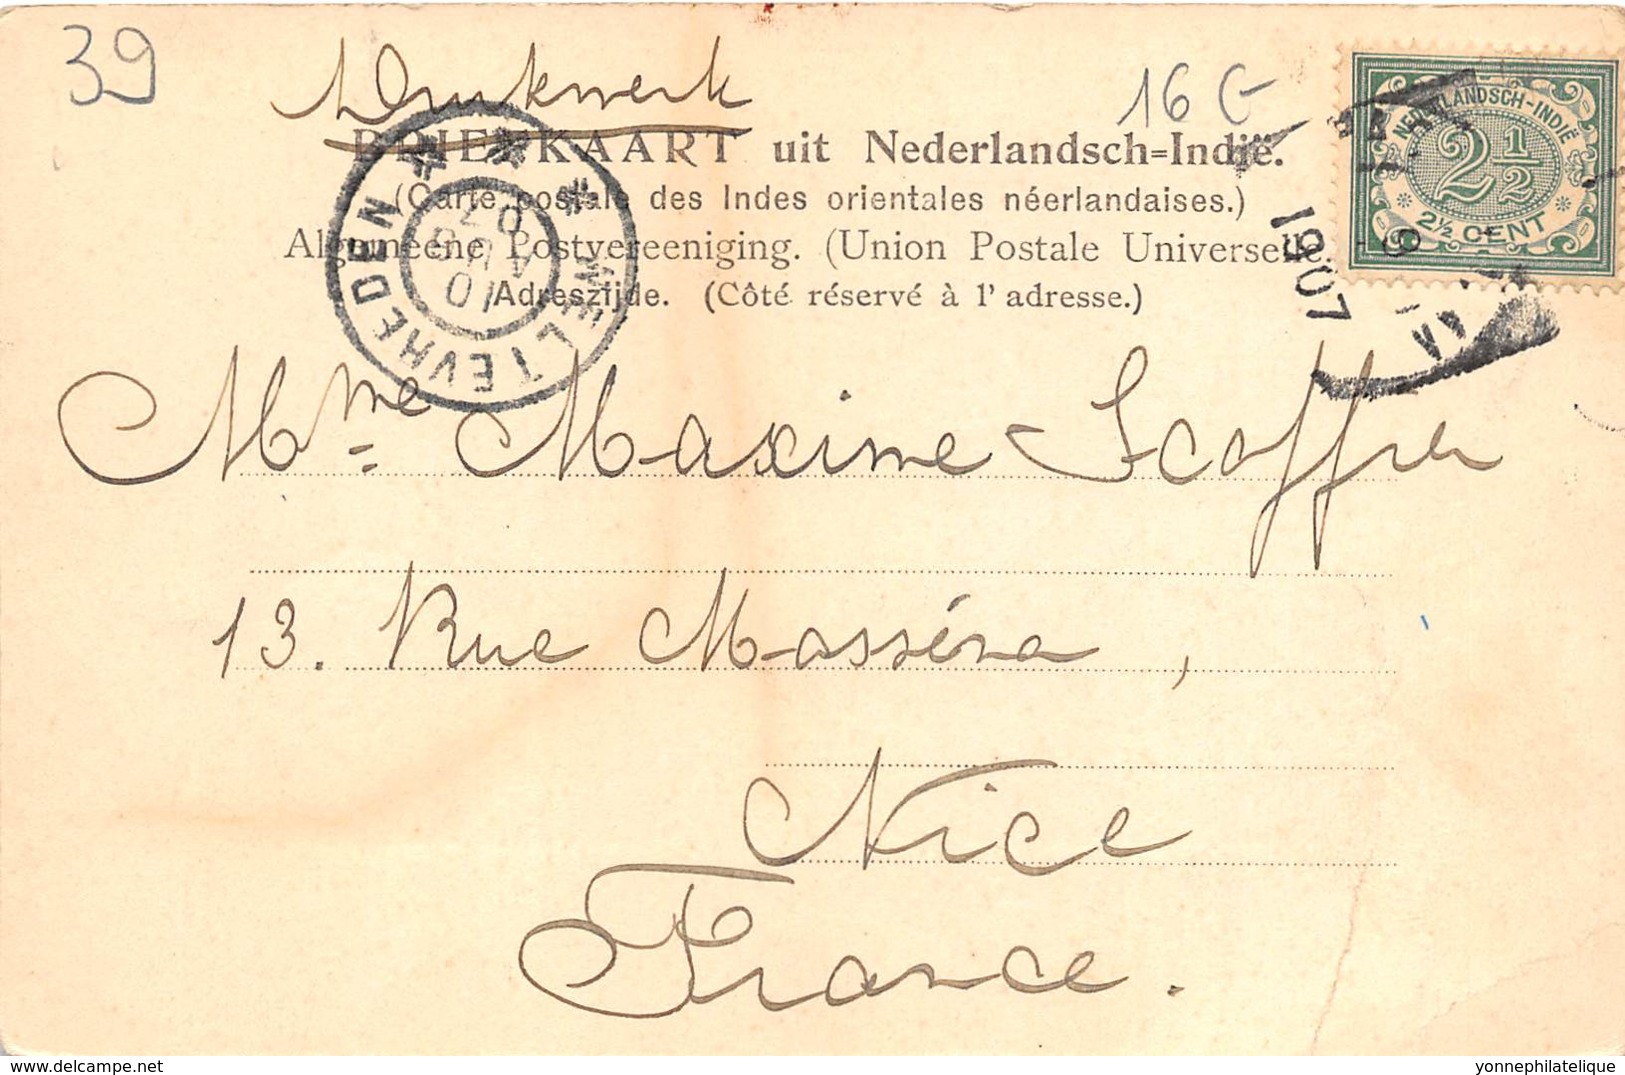 39
Drukwerk
16 €
BRIEFKAART uit Nederlandsch=Indië.
(Carte postale des Indes orientales néerlandaises.)
Algemeene Postvereeniging. (Union Postale Universelle.
Adreszijde. (Côté réservé à l'adresse.)
NEDERLANDSCH-INDIË
2 1/2
2½ CENT
WELTEVREDEN
1907
Mme Maxime Scoffier
13. Rue Masséna,
Nice
France.
delcampe.net
yonnephilatelique